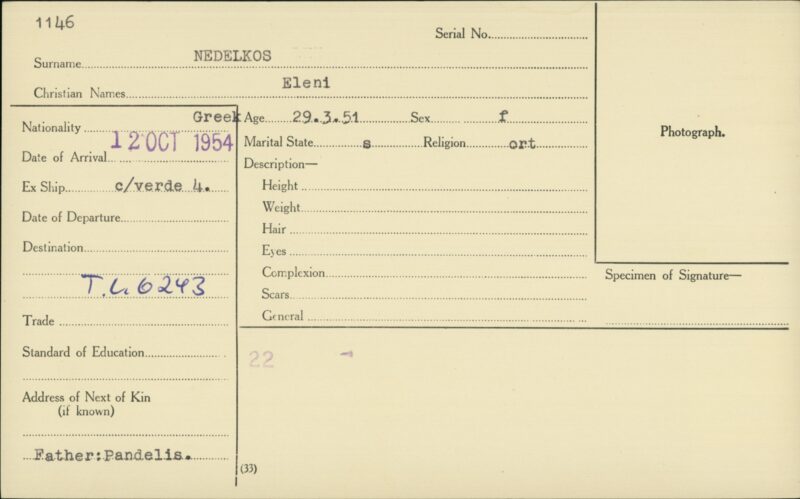 1146
Serial No.
Surname NEDELKOS
Christian Names Eleni
Nationality Greek
Date of Arrival 12 OCT 1954
Ex Ship c/verde 4.
Date of Departure
Destination
T.L 6243
Trade
Standard of Education
Address of Next of Kin
(if known)
Father:Pandelis.
Age 29.3.51 Sex f
Marital State s Religion ort
Description—
Height
Weight
Hair
Eyes
Complexion
Scars
General
22 -
(33)
Photograph.
Specimen of Signature—